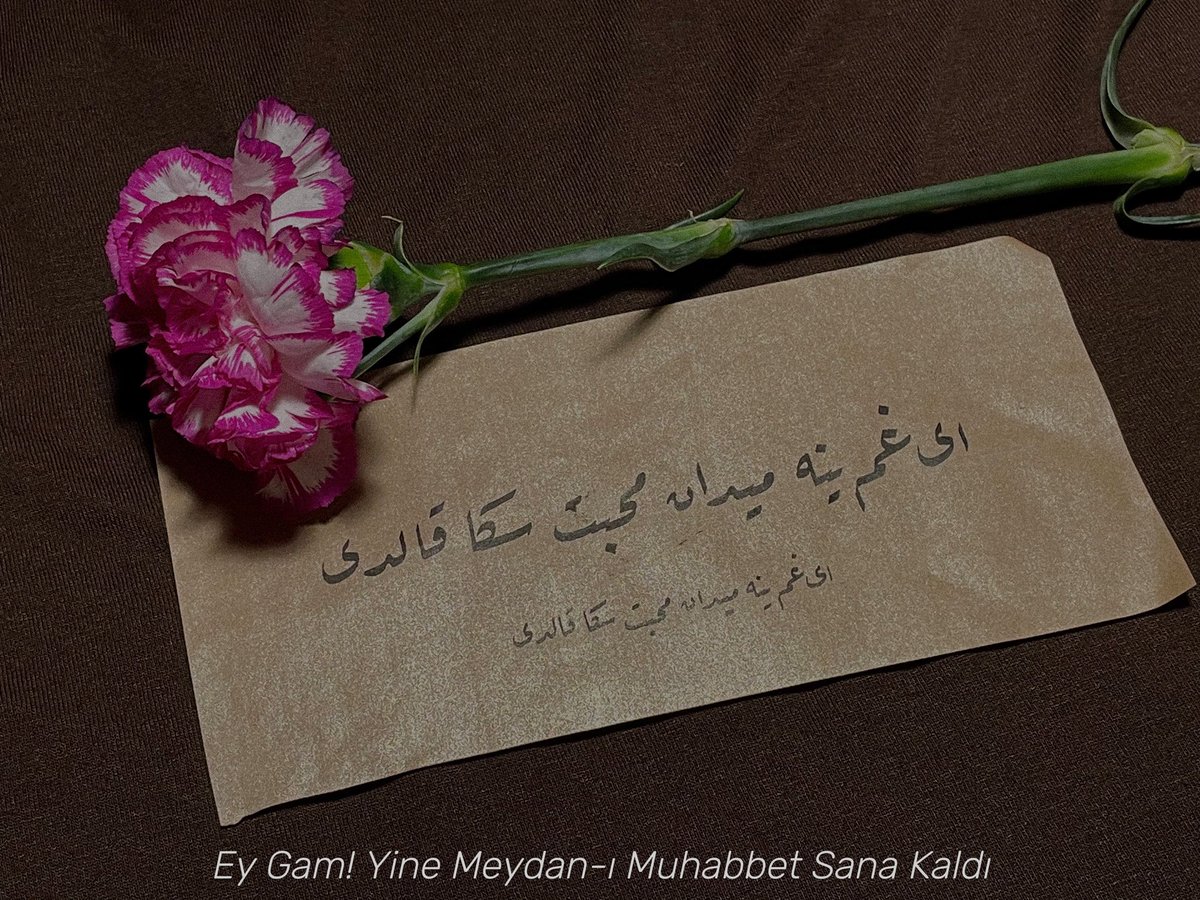 ای غم ینه میدان محبت سكا قالدی
ای غم ینه میدان محبت سكا قالدی
Ey Gam! Yine Meydan-ı Muhabbet Sana Kaldı